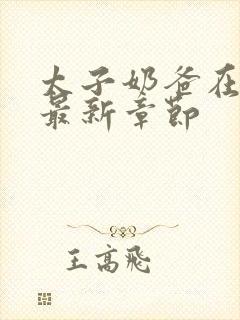 太子奶爸在
最新章节
王高飞